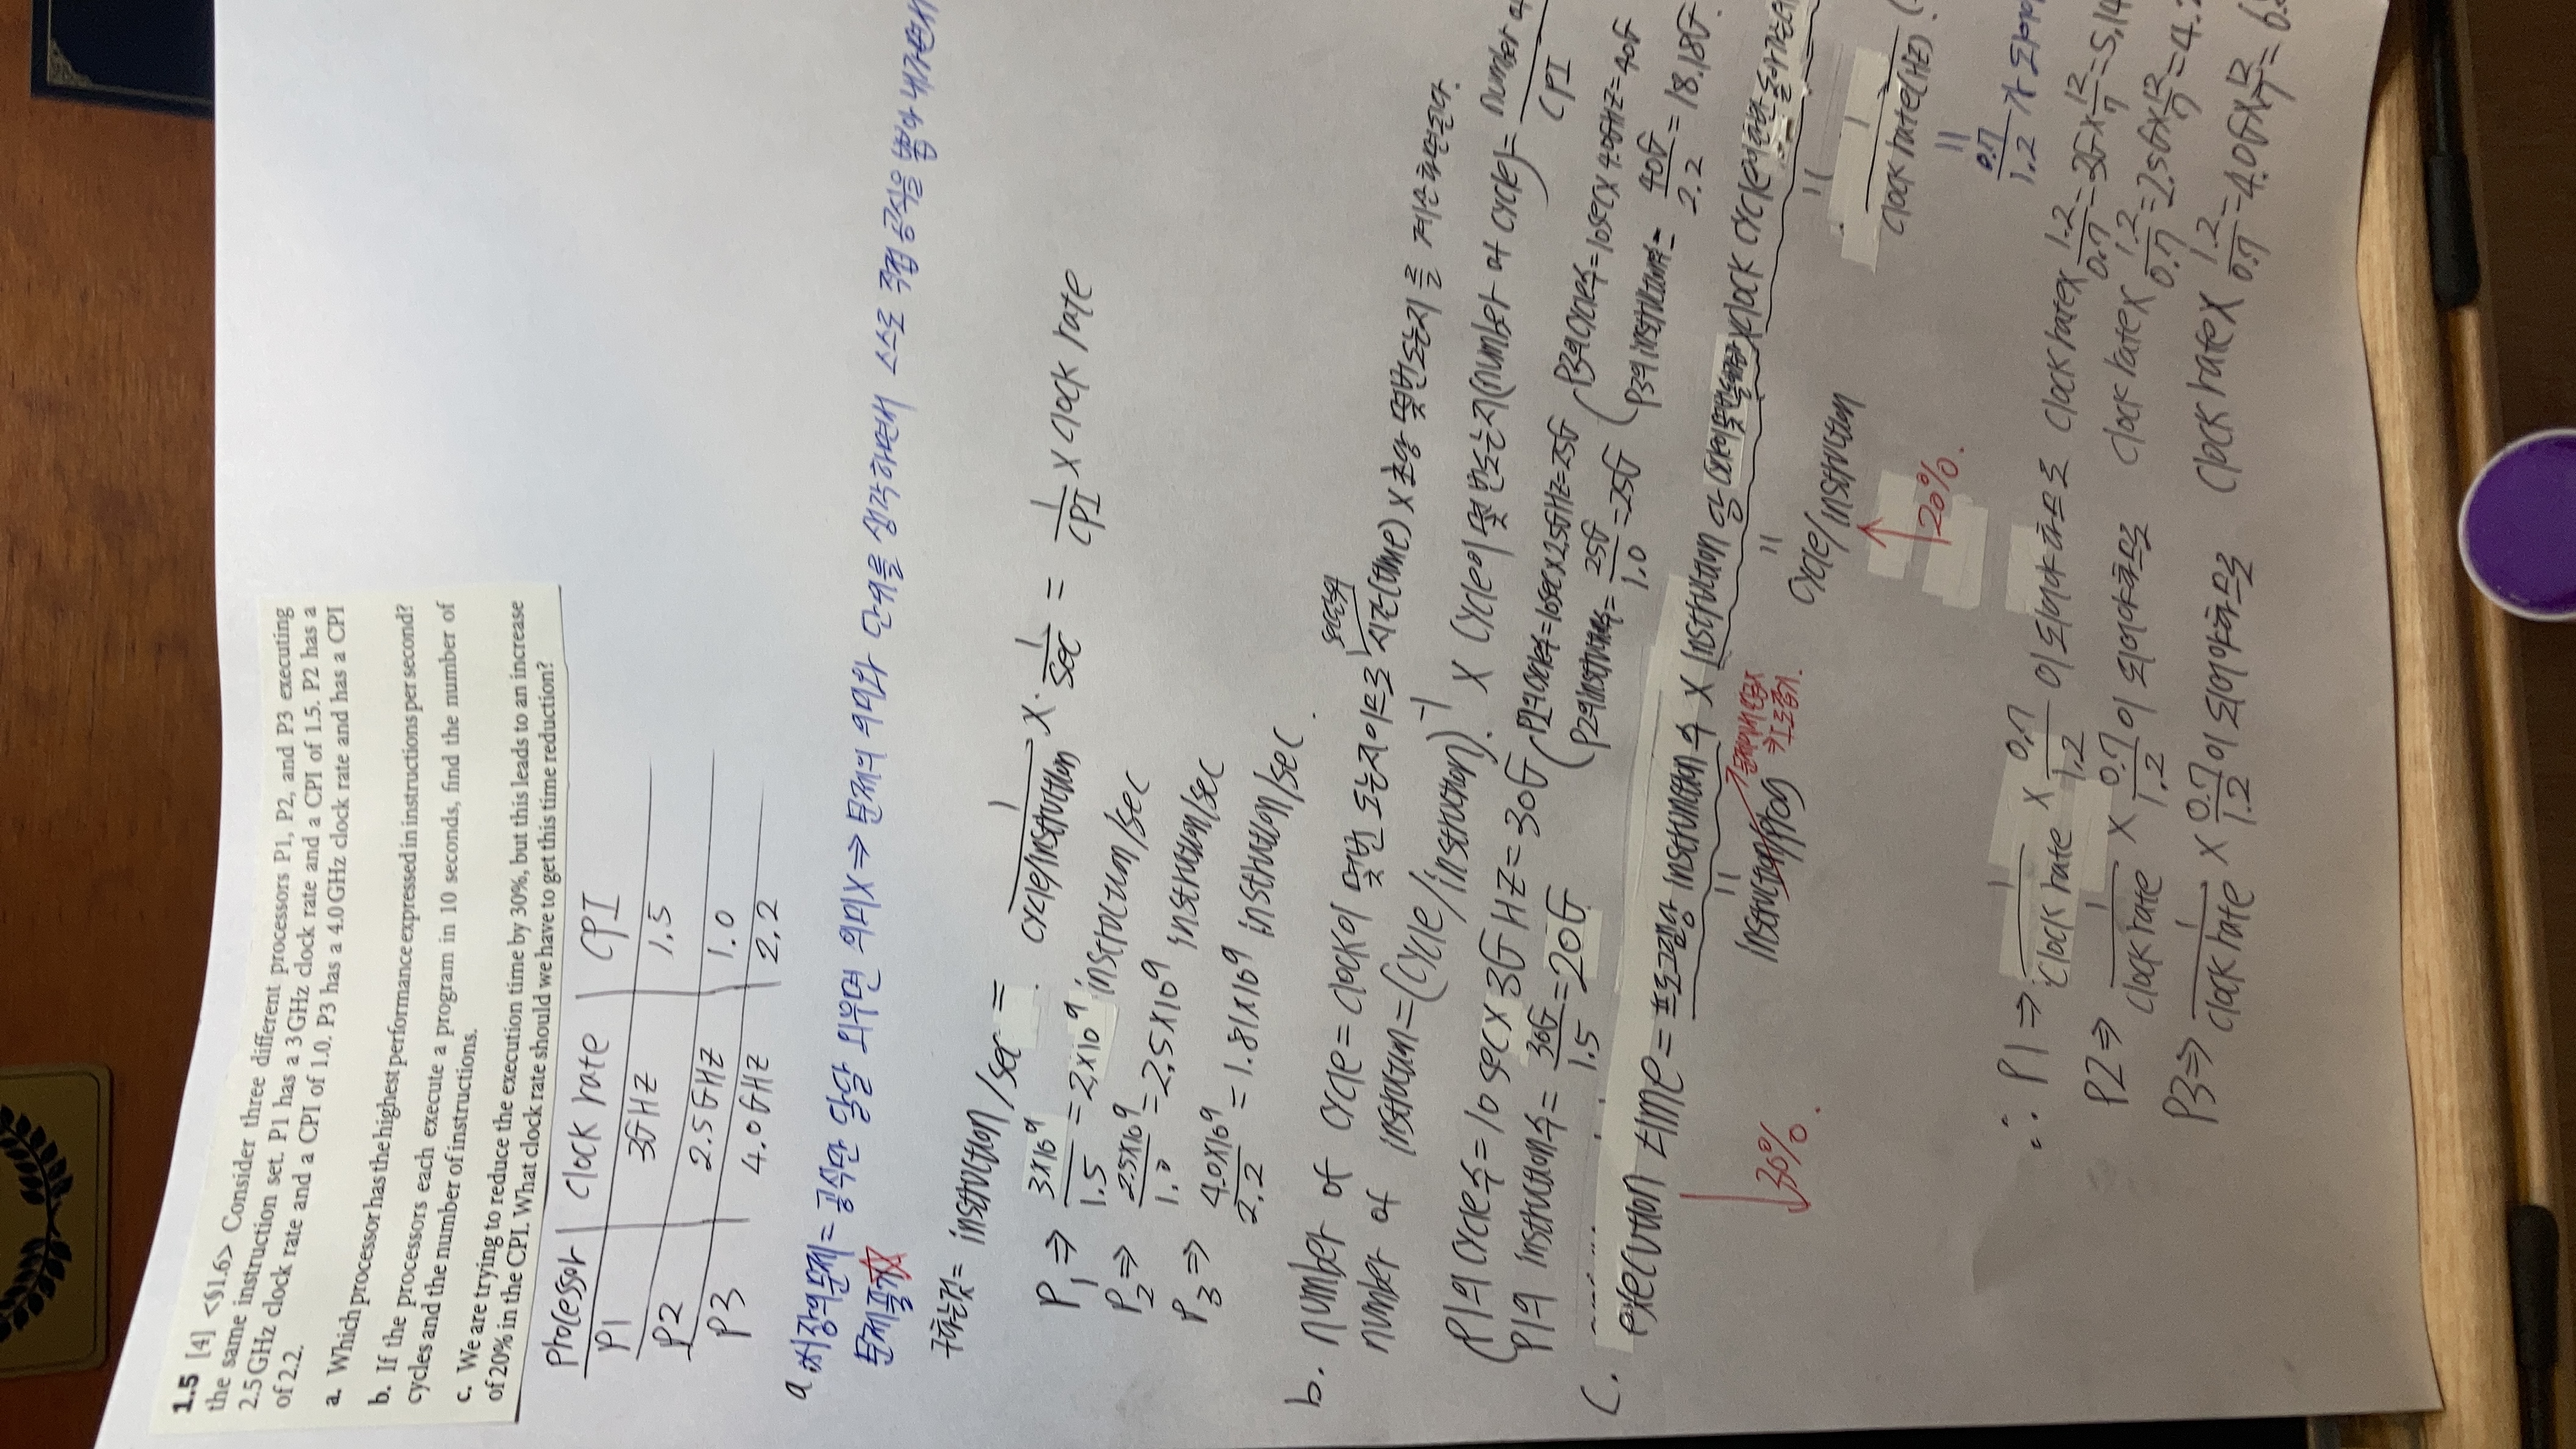 1.5 [4] <§1.6> Consider three different processors P1, P2, and P3 executing
the same instruction set. P1 has a 3 GHz clock rate and a CPI of 1.5. P2 has a
2.5 GHz clock rate and a CPI of 1.0. P3 has a 4.0 GHz clock rate and has a CPI
of 2.2.
a. Which processor has the highest performance expressed in instructions per second?
b. If the processors each execute a program in 10 seconds, find the number of
cycles and the number of instructions.
c. We are trying to reduce the execution time by 30%, but this leads to an increase
of 20% in the CPI. What clock rate should we have to get this time reduction?
Processor clock rate CPI
P1 3GHZ 1.5
P2 2.5GHZ 1.0
P3 4.0GHZ 2.2
a. 처장의문제 = 공식만 달달 외우면 의미X ⇒ 문제의 의미와 단위를 생각하면서 스스로 직접 공식을 뽑아 내가면서
문제풀기☆
구하는것 = instruction/sec = 1/(cycle/instruction) × 1/sec = 1/CPI × clock rate
P1 ⇒ 3×10^9/1.5 = 2×10^9 instruction/sec
P2 ⇒ 2.5×10^9/1.0 = 2.5×10^9 instruction/sec
P3 ⇒ 4.0×10^9/2.2 = 1.81×10^9 instruction/sec.
b. number of cycle = clock이 몇번 도는지이므로 시간(time) × 초당 몇번도는지를 계산하면된다.
number of instruction = (cycle/instruction)^-1 × cycle이 몇 번도는지(number of cycle) = number of/CPI
P1의 cycle수 = 10 sec × 3GHZ = 30G
P1의 instruction수 = 30G/1.5 = 20G
P2의 cycle수 = 10sec × 2.5GHZ = 25G
P2의 instruction수 = 25G/1.0 = 25G
P3의 cycle수 = 10sec × 4.0GHZ = 40G
P3의 instruction수 = 40G/2.2 = 18.18G.
c. execution time = 프로그램당 instrunction 수 × instruction 당 cycle이 몇번 × clock cycle이 한번 돌아가는데
↓30%.
= instruction/prog
= cycle/instruction
↑20%.
= 1/clock rate(HZ)
= 0.7/1.2 가 되어야
∴ P1 ⇒ 1/clock rate × 0.7/1.2 이 되어야 하므로 clock rate × 1.2/0.7 = 3G × 12/7 = 5.14
P2 ⇒ 1/clock rate × 0.7/1.2 이 되어야하므로 clock rate × 1.2/0.7 = 2.5G × 12/7 = 4.
P3 ⇒ 1/clock rate × 0.7/1.2 이 되어야하므로 clock rate × 1.2/0.7 = 4.0G × 12/7 = 6.